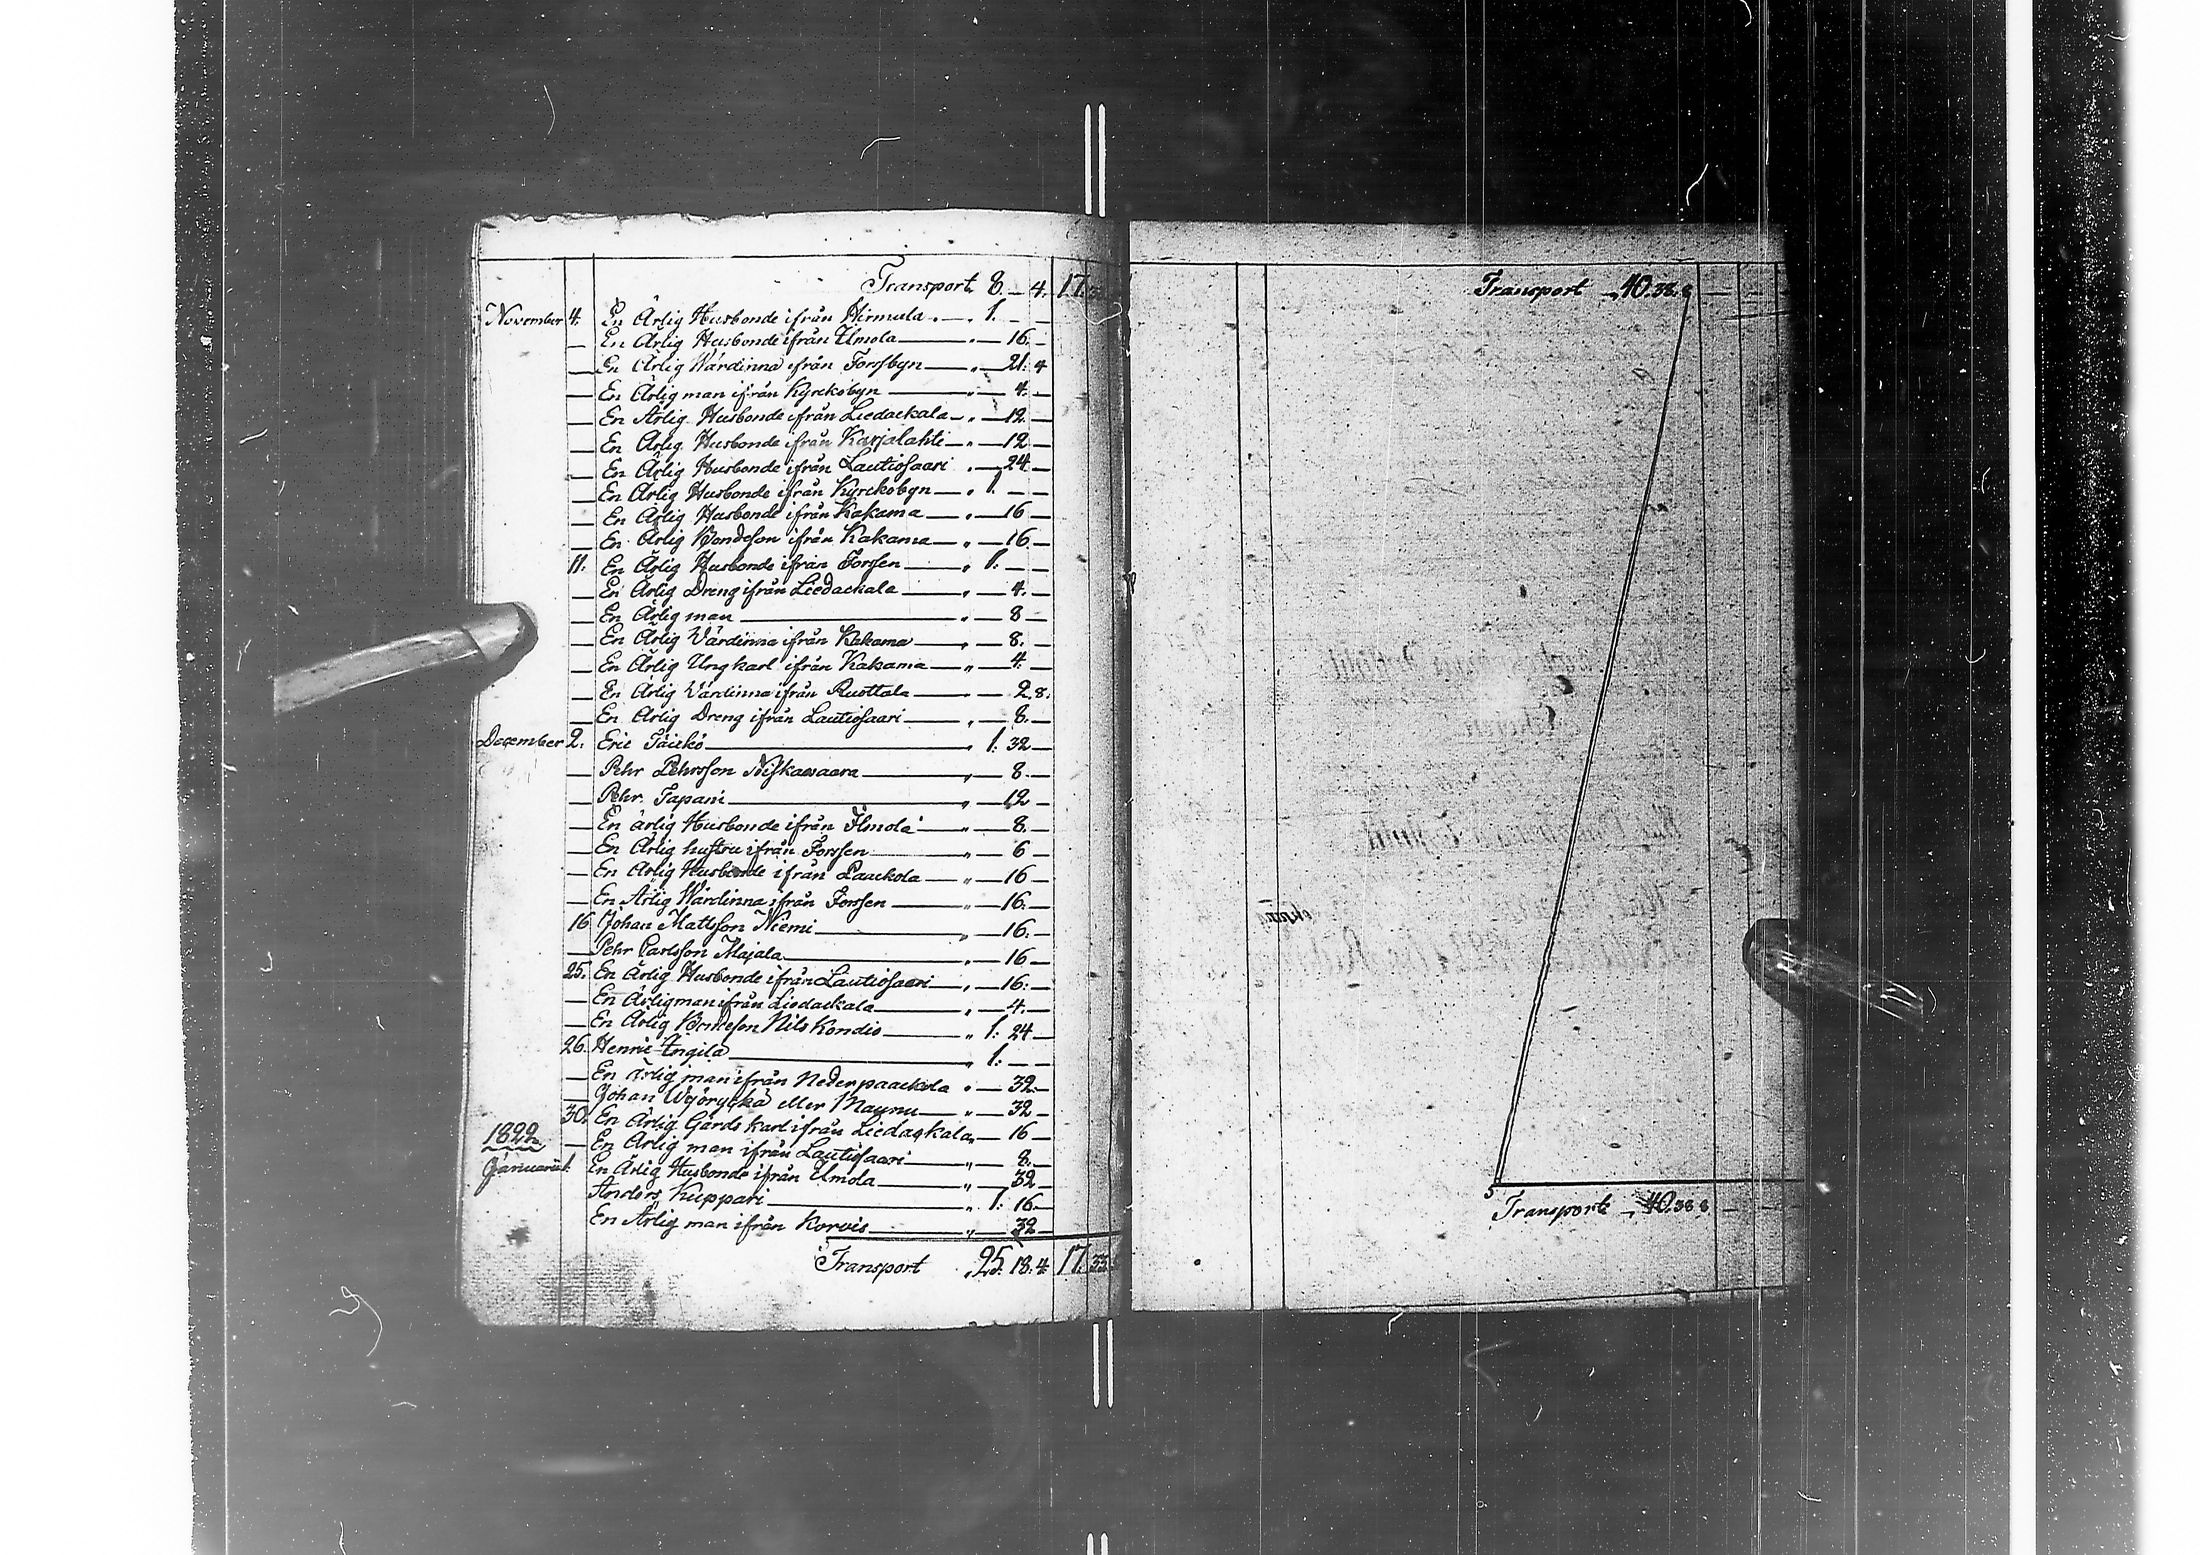 Transport 8. – 4. 17. 3
November 4. En Ärlig Husbonde ifrån Hirmula . – . 1. – –
— En Ärlig Husbonde ifrån Ilmola — . — 16. –
— En Ärlig Wärdinna ifrån Forssbyn — . — 21. 4
— En Ärlig man ifrån Kyrckobyn — . — 4. –
— En Ärlig Husbonde ifrån Liedackala — . — 12. –
— En Ärlig Husbonde ifrån Karjalahti — . — 12 –
— En Ärlig Husbonde ifrån Lautiosaari . — 24. –
— En Ärlig Husbonde ifrån Kyrckobyn — . 1. – –
— En Ärlig Husbonde ifrån Kakama — . — 16 –
— En Ärlig Bondeson ifrån Kakama — „ — 16. –
11. En Ärlig Husbonde ifrån Forssen — „ 1. – –
— En Ärlig Dreng ifrån Liedackala — „ — 4. –
— En Ärlig man — „ — 8 –
— En Ärlig Värdinna ifrån Kakama — „ — 8. –
— En Ärlig Ung karl ifrån Kakama — „ — 4. –
— En Ärlig Värdinna ifrån Ruottala — . — 2. 8.
— En Ärlig Dreng ifrån Lautiosaari — „ — 8. –
December 2. Eric Täickö — „ 1. 32 –
— Pehr Pehrsson Niskawaara — „ — 8. –
— Pehr Tapani — „ — 12 –
— En ärlig Husbonde ifrån Ilmola — „ — 8. –
— En Ärlig hustru ifrån Forssen — „ — 6 –
— En Ärlig Husbonde ifrån Paackola — „ — 16 –
— En Ärlig Wärdinna ifrån Forssen — „ — 16. –
16 Johan Mattsson Niemi — „ — 16. –
— Pehr Carlsson Majala — „ — 16 –
25. En Ärlig Husbonde ifrån Lautiosaari — „ — 16. –
— En Ärlig man ifrån Liedackala — „ — 4. –
— En Ärlig Bondeson Nils Kondio — „ 1. 24 –
26. Henric Ängilä — „ 1. – –
— En ärlig man ifrån Nederpaackola . — 32. –
— Johan eller Maunu — „ — 32 –
30. En Ärlig Gårds karl ifrån Liedackala „ — 16 –
1822
— En Ärlig man ifrån Lautiosaari — „ — 8. –
Januarii 1. En Ärlig Husbonde ifrån Ilmola — „ — 32 –
Anders Kuppari — „ 1. 16. –
En Ärlig man ifrån Korvis — „ — 32 –
Transport 25. 18. 4. 17. 33.
Transport – 40. 38. 8
Transport – 40. 38 8